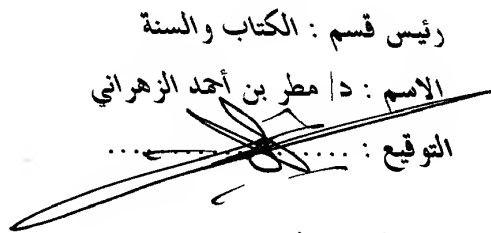 رئيس قسم : الكتاب والسنة
الاسم : د/ مطر بن أحمد الزهراني
التوقيع : ..............